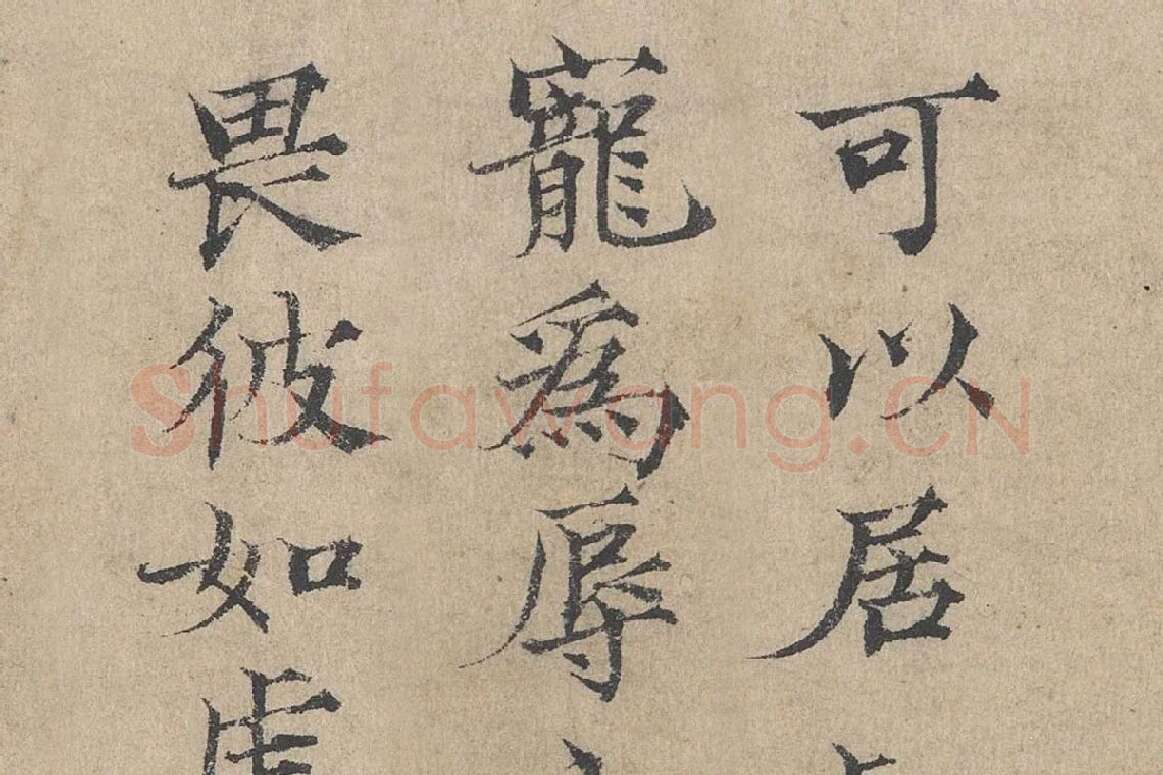 可以居
寵為辱
畏彼如虐
Shufawang.CN